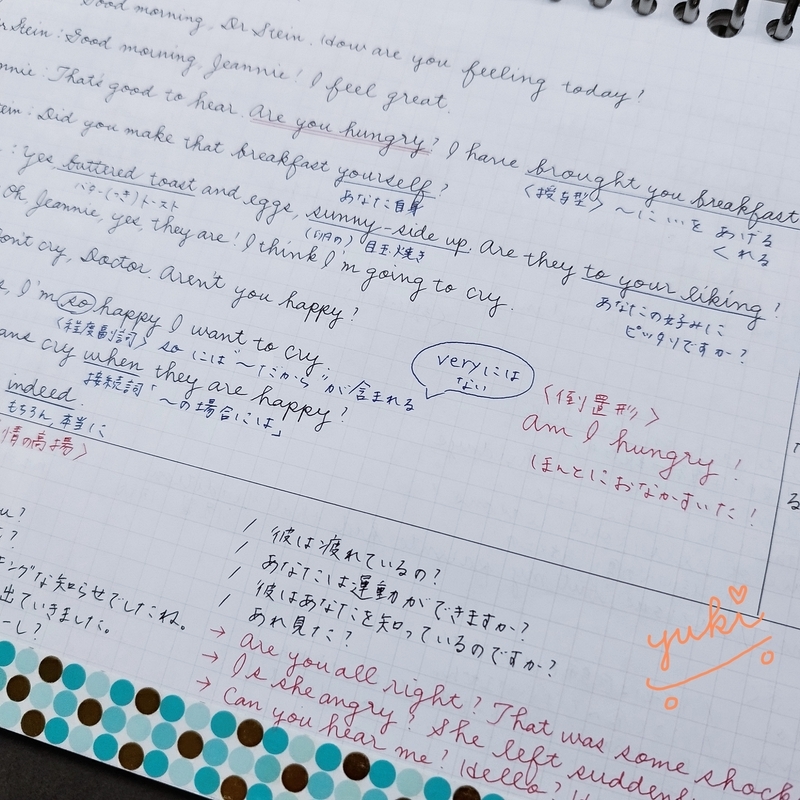 Good morning, Dr Stein. How are you feeling today?
Stein: Good morning, Jeannie! I feel great.
nnie: That's good to hear. Are you hungry? I have brought you breakfast
<授与型> 〜に…を あげる
くれる
tein: Did you make that breakfast yourself?
あなた自身
: Yes, buttered toast and eggs, sunny-side up. Are they to your liking?
バター(つき)トースト
(卵の) 目玉焼き
あなたの好みに
ピッタリですか?
oh, Jeannie, yes, they are! I think I'm going to cry.
Don't cry, Doctor. Aren't you happy?
s, I'm so happy I want to cry.
<程度副詞> so には"〜だから"が含まれる
veryには
ない
ans cry when they are happy?
接続詞「〜の場合には」
indeed.
もちろん, 本当に
情の高揚>
<倒置形>
am I hungry!
ほんとにおなかすいた!
る
u?
?
キングな知らせでしたね。
出ていきました。
ーし?
/ 彼は疲れているの?
/ あなたは運動ができますか?
/ 彼はあなたを知っているのですか?
/ あれ見た?
→ Are you all right? That was some shock
→ Is she angry? She left sudden
→ Can you hear me? Hello?
yuki